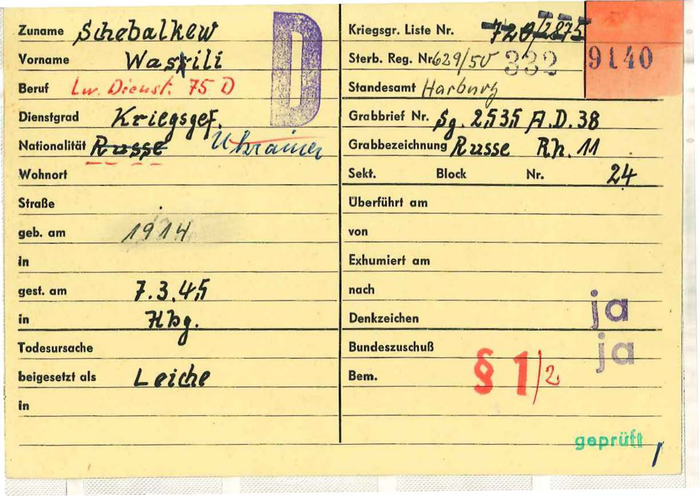 Zuname Schebalkew
Vorname Wassili
Beruf Lw. Dienst. 75 D
Dienstgrad Kriegsgef.
Nationalität Russe Ukrainer
Wohnort
Straße
geb. am 1914
in
gest. am 7.3.45
in Hbg.
Todesursache
beigesetzt als Leiche
in
D
Kriegsgr. Liste Nr. 720/2875
Sterb. Reg. Nr. 629/50 332 9140
Standesamt Harburg
Grabbrief Nr. Sg. 2535 A.D. 38
Grabbezeichnung Russe Rh. 11
Sekt. Block Nr. 24
Überführt am
von
Exhumiert am
nach
Denkzeichen ja
Bundeszuschuß ja
Bem. § 1/2
geprüft